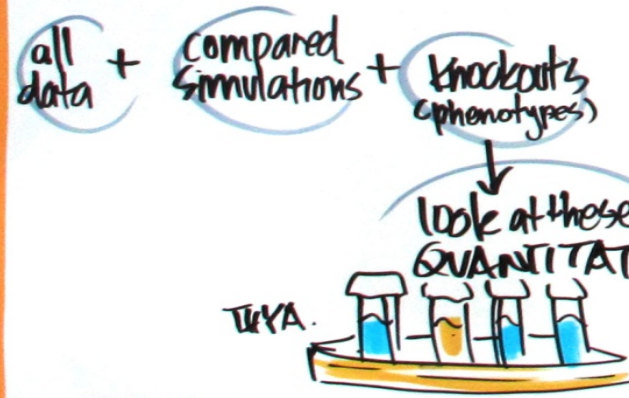 all
data
+
compared
simulations
+
knockouts
(phenotypes)
look at these
QUANTITAT